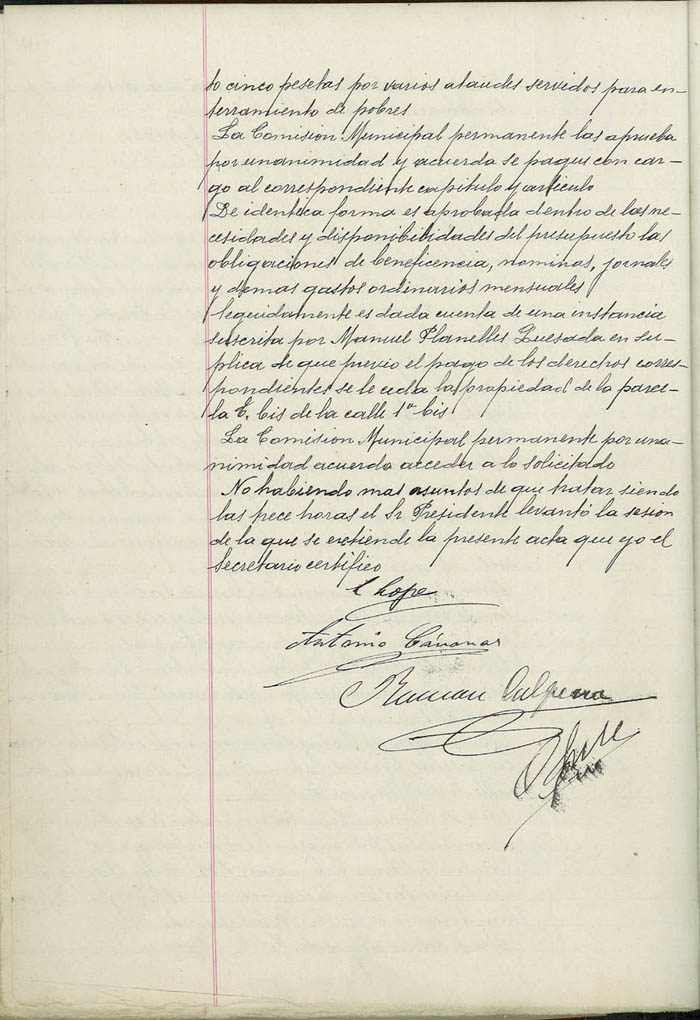 to cinco pesetas por varios ataudes servidos para en-
terramiento de pobres
La Comision Municipal permanente las aprueba
por unanimidad y acuerda se paguen con car-
go al correspondiente capitulo y articulo
De identica forma es aprobada dentro de las ne-
cesidades y disponibilidades del presupuesto las
obligaciones de beneficencia, nominas, jornales
y demas gastos ordinarios mensuales
Seguidamente es dada cuenta de una instancia
suscrita por Manuel Planelles Quesada en su-
plica de que previo el pago de los derechos corres-
pondientes se le ceda la propiedad de la parce-
la C. bis de la calle 1ª bis
La Comision Municipal permanente por una-
nimidad acuerda acceder a lo solicitado
No habiendo mas asuntos de que tratar siendo
las trece horas el Sr Presidente levantó la sesion
de la que se extiende la presente acta que yo el
Secretario certifico
Lope
Antonio Cánovas
Ramon Culpena